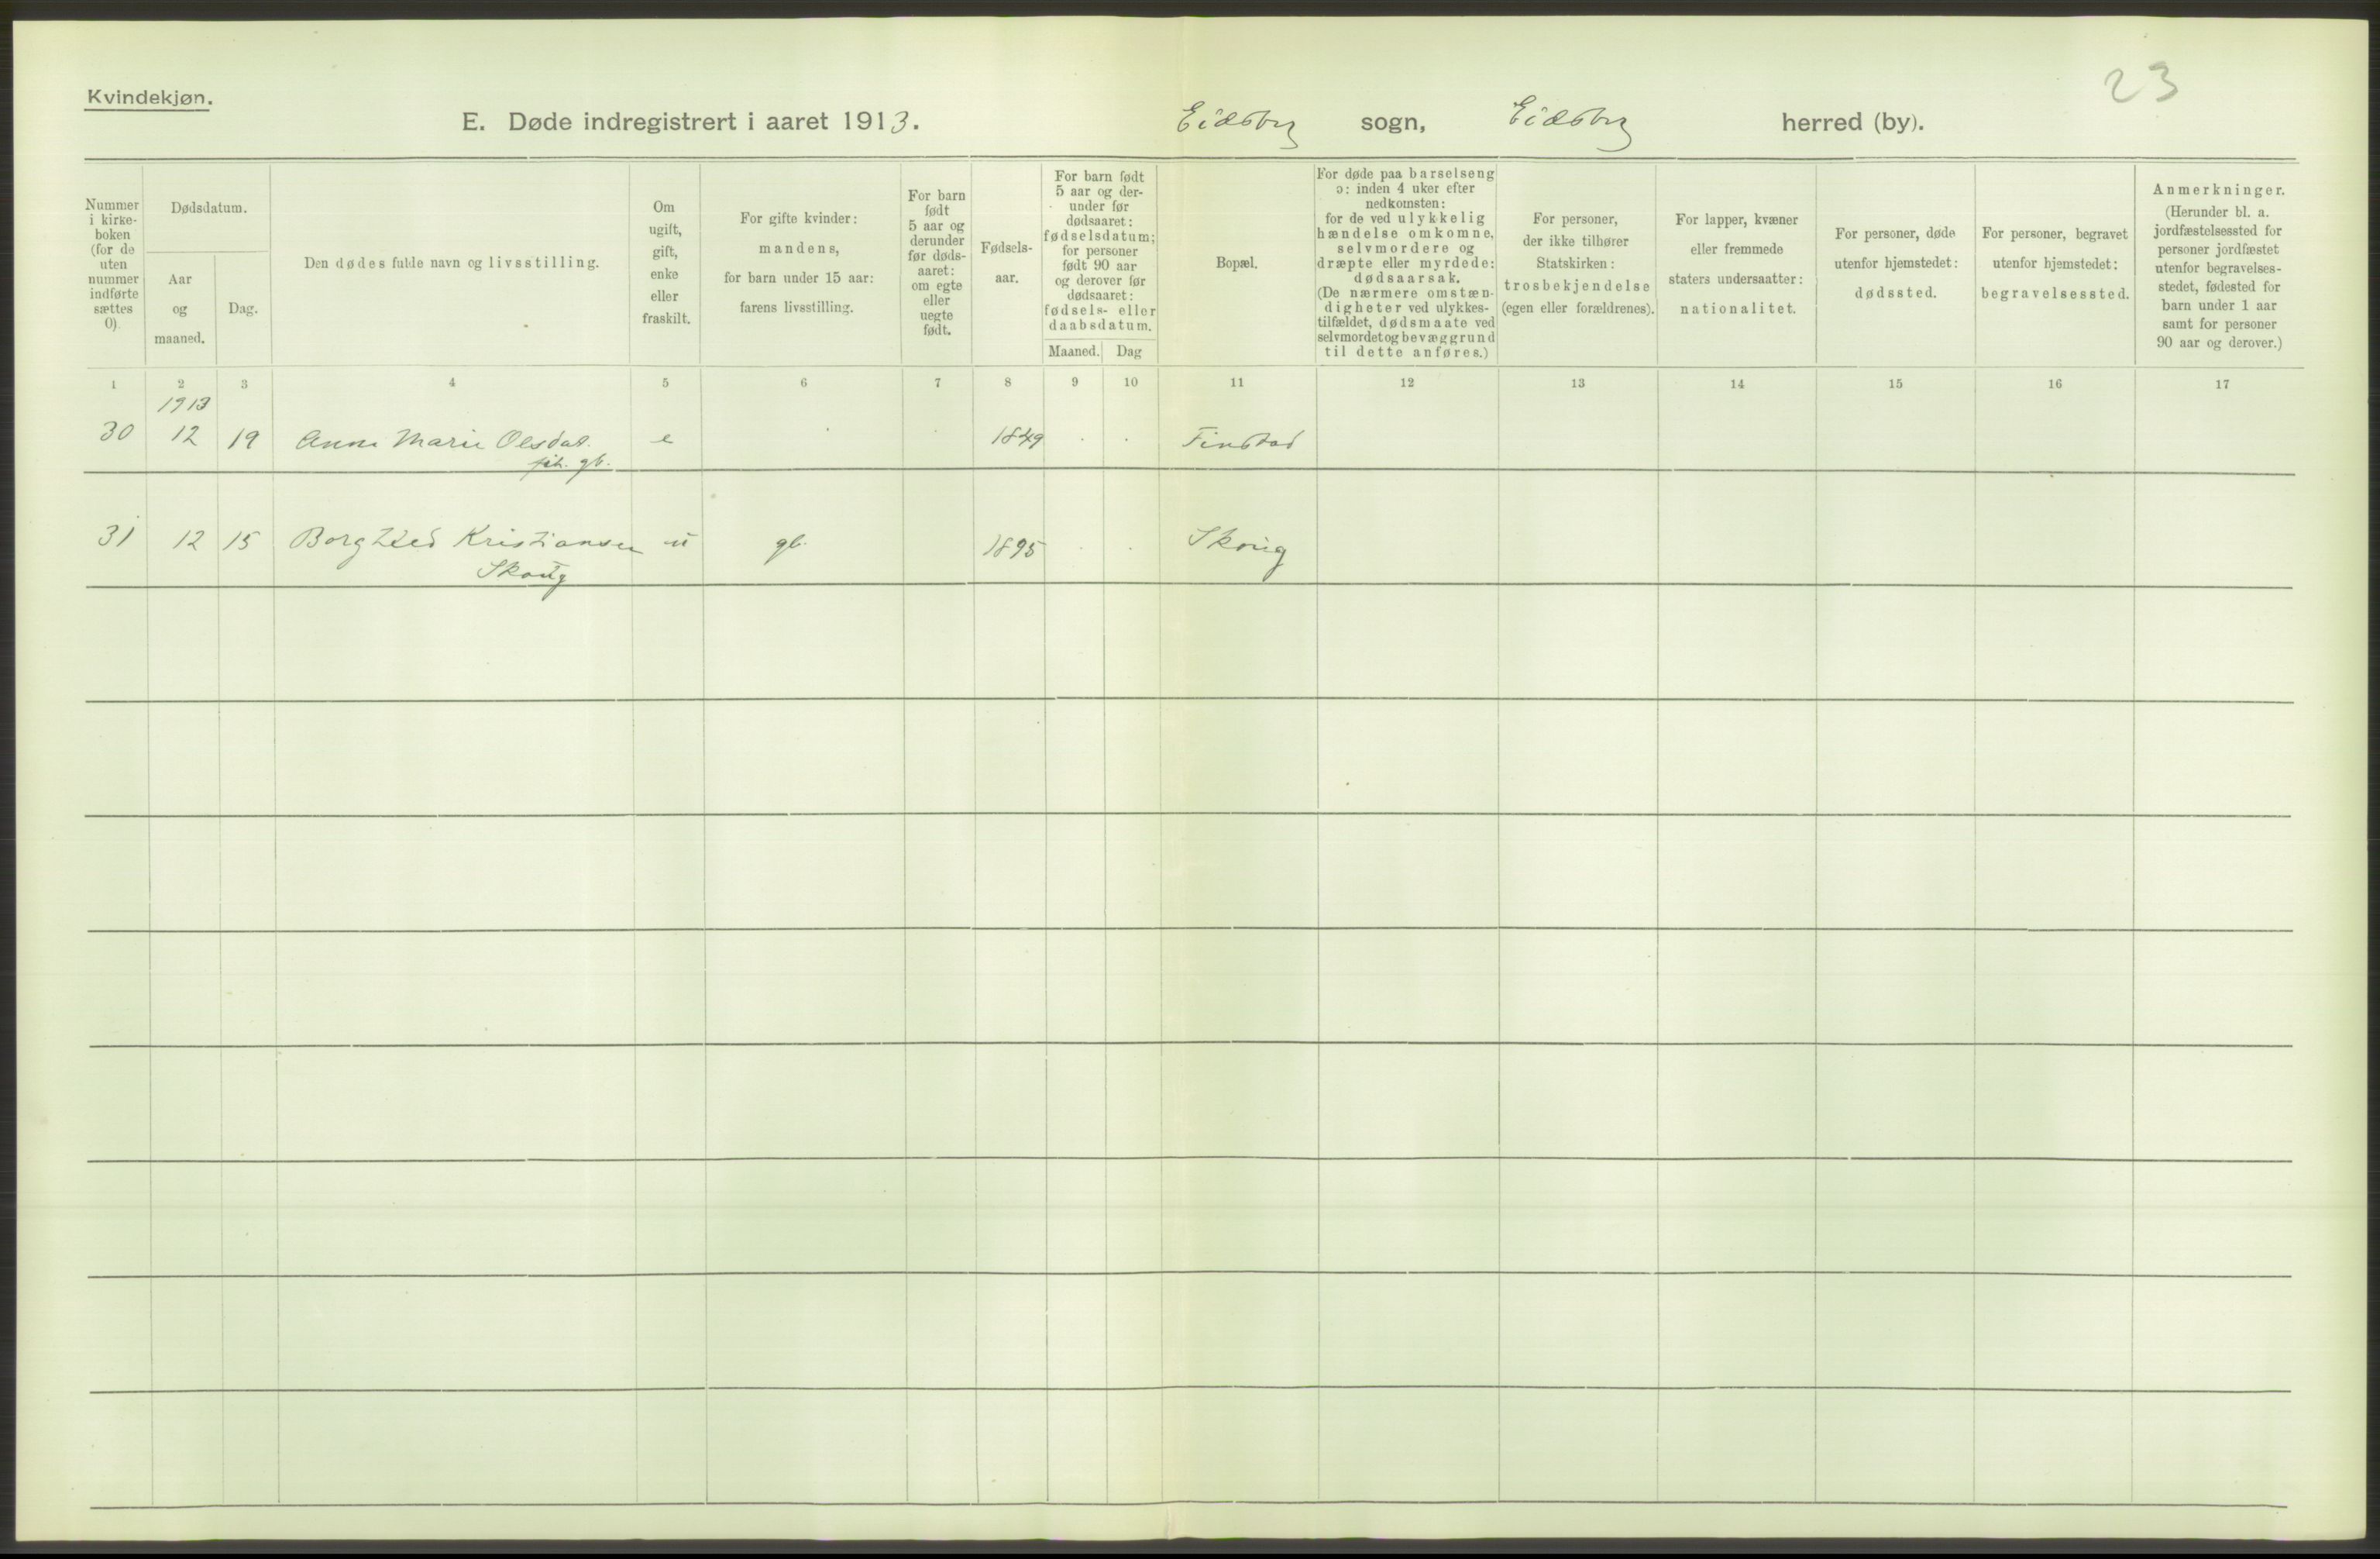 23
Kvindekjøn.
E. Døde indregistrert i aaret 1913. Eidsberg sogn, Eidsberg herred (by).
Nummer i kirke-boken (for de uten nummer indførte sættes 0).
Dødsdatum.
Aar og maaned.
Dag.
Den dødes fulde navn og livsstilling.
Om ugift, gift, enke eller fraskilt.
For gifte kvinder: mandens, for barn under 15 aar: farens livsstilling.
For barn født 5 aar og derunder før døds-aaret: om egte eller uegte født.
Fødsels-aar.
For barn født 5 aar og der-under før dødsaaret: fødselsdatum; for personer født 90 aar og derover før dødsaaret: fødsels- eller daabsdatum.
Maaned. Dag
Bopæl.
For døde paa barselseng ɔ: inden 4 uker efter nedkomsten: for de ved ulykkelig hændelse omkomne, selvmordere og dræpte eller myrdede: dødsaarsak. (De nærmere omstæn-digheter ved ulykkes-tilfældet, dødsmaate ved selvmordet og bevæggrund til dette anføres.)
For personer, der ikke tilhører Statskirken: trosbekjendelse (egen eller forældrenes).
For lapper, kvæner eller fremmede staters undersaatter: nationalitet.
For personer, døde utenfor hjemstedet: dødssted.
For personer, begravet utenfor hjemstedet: begravelsessted.
Anmerkninger. (Herunder bl. a. jordfæstelsessted for personer jordfæstet utenfor begravelses-stedet, fødested for barn under 1 aar samt for personer 90 aar og derover.)
1 2 3 4 5 6 7 8 9 10 11 12 13 14 15 16 17
1913
30 12 19 Anne Marie Olsdat. e 1849 Finstad
gb.
31 12 15 Borghild Kristiansen u gb. 1895 Skoug
Skoug